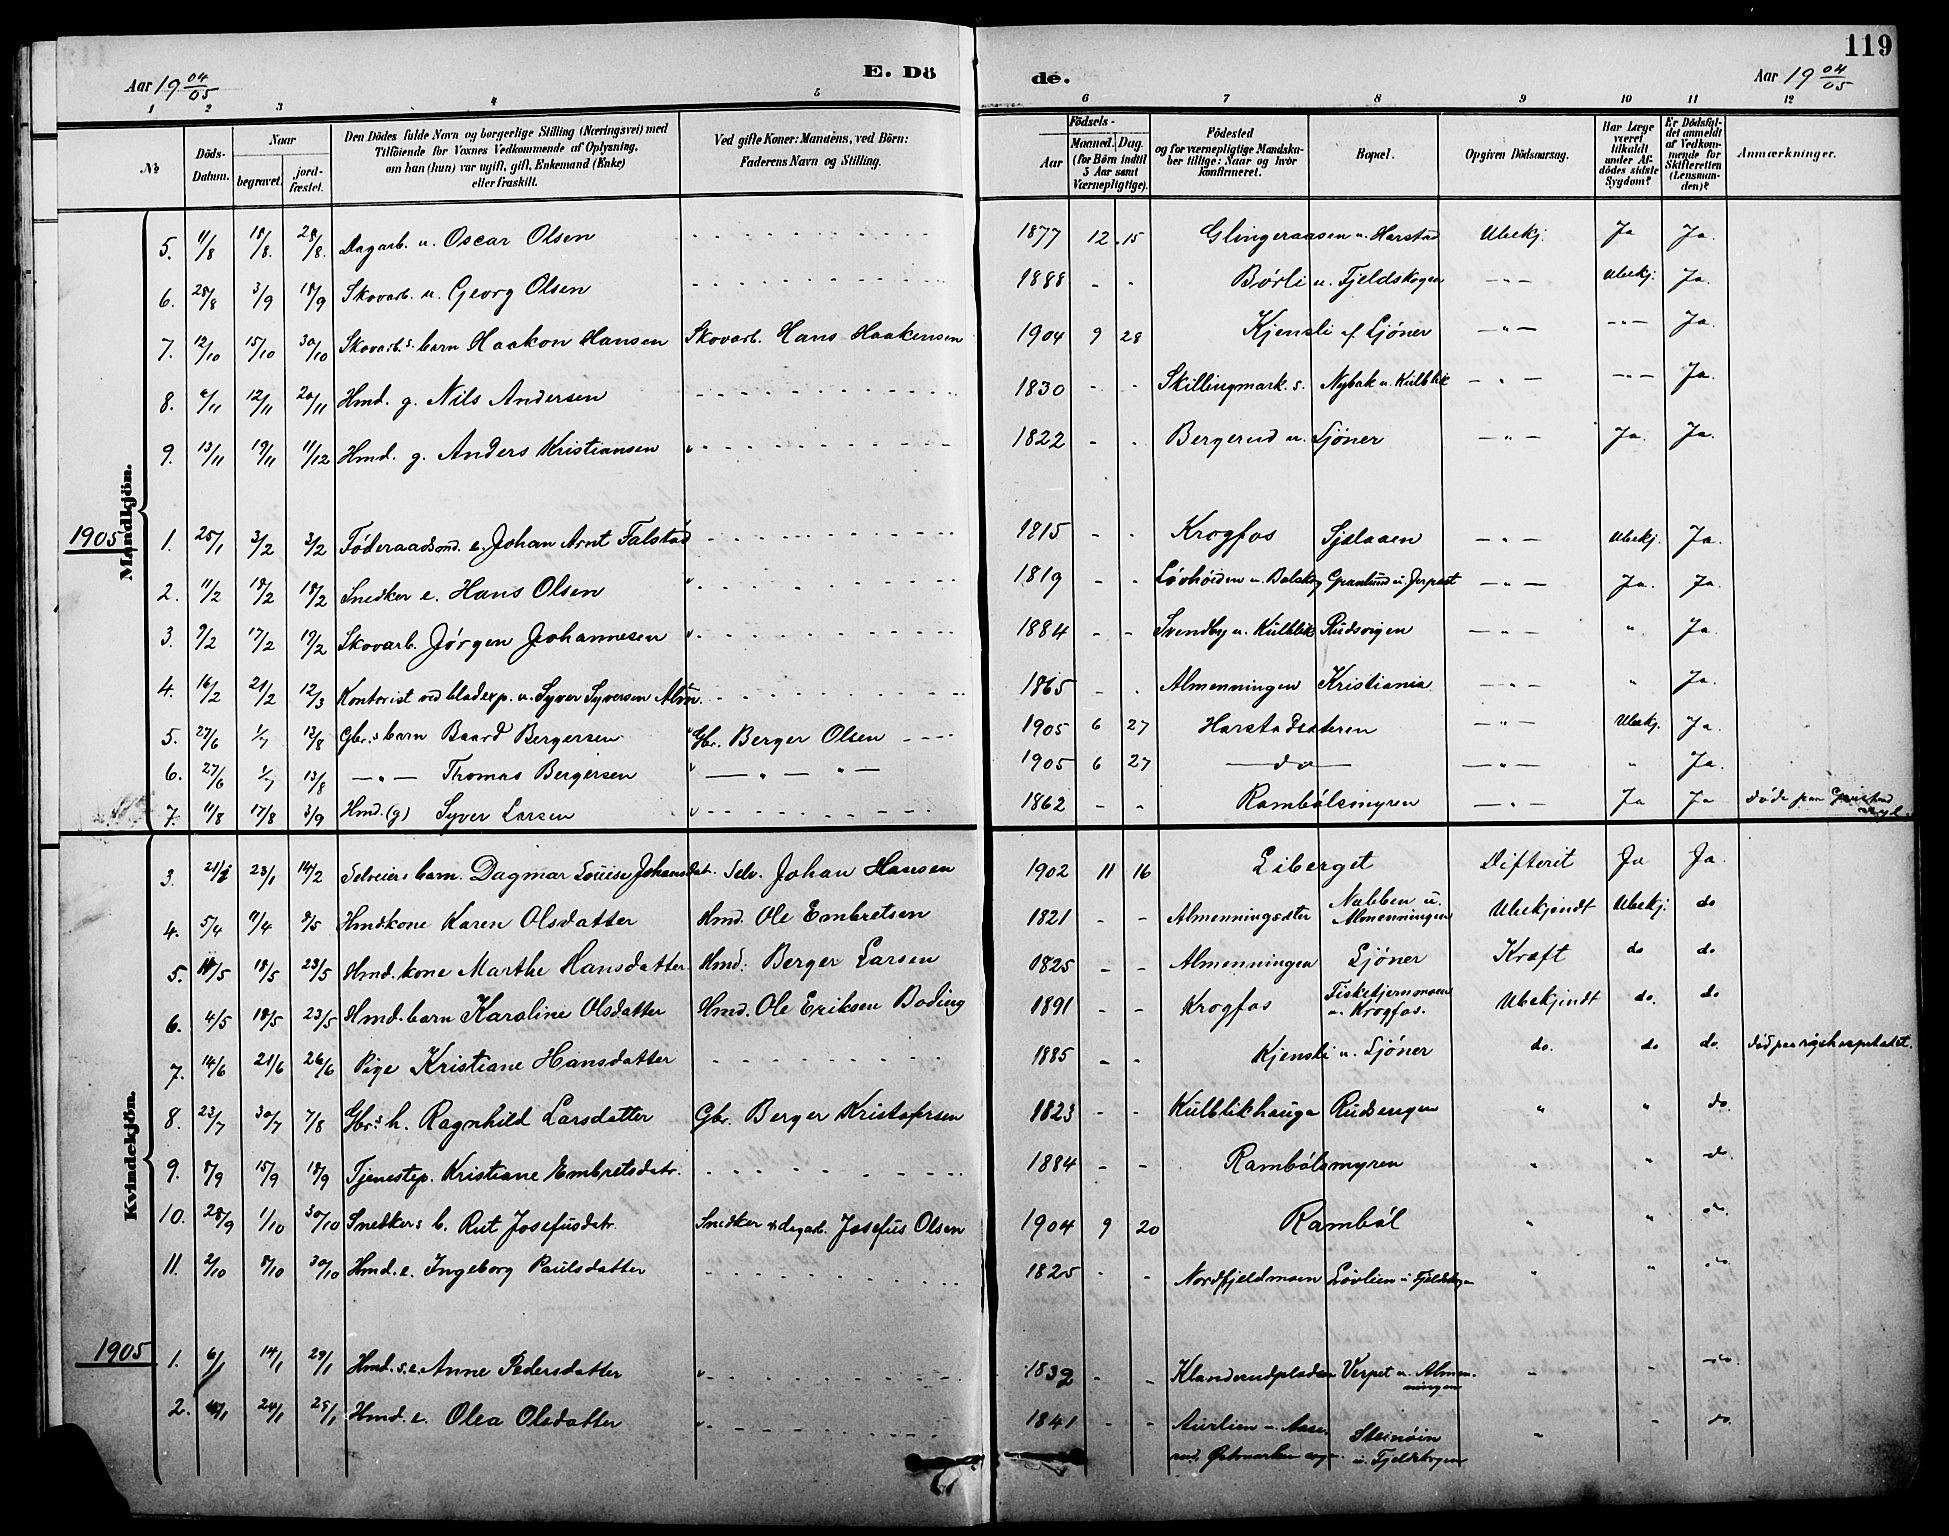 119
Aar 19 04/05 E. Dö de. Aar 19 04/05
1 2 3 4 5 6 7 8 9 10 11 12
No
Döds-Datum.
Naar
begravet.
jordfæstet.
Den Dödes fulde Navn og borgerlige Stilling (Næringsvei) med
Tilföiende for Voxnes Vedkommende af Oplysning,
om han (hun) var ugift, gift, Enkemand (Enke)
eller fraskilt.
Ved gifte Koner: Mandens, ved Börn:
Faderens Navn og Stilling.
Födsels-
Aar
Maaned. Dag.
(for Börn indtil
5 Aar samt
Værnepligtige).
Födested
og for værnepligtige Mandska-
ber tillige: Naar og hvor
konfirmeret.
Bopæl.
Opgiven Dödsaarsag.
Har Læge
været
tilkaldt
under Af-
dödes sidste
Sygdom?
Er Dödsfal-
det anmeldt
af Vedkom-
mende for
Skifteretten
(Lensman-
den)?
Anmærkninger.
Mandkjön.
5. 11/8 18/8. 28/8. Dagarb. u. Oscar Olsen 1877 12 15 Glingeraasen u. Harstad Ubekj. Ja Ja.
6. 28/8 3/9 18/9 Skovarb. u. Georg Olsen 1888 - - Børli u. Fjeldskogen - " - Ubekj. Ja.
7. 12/10 15/10 30/10 Skovarb.s barn Haakon Hansen Skovarb. Hans Haakensen 1904 9 28 Kjensli u. Ljöner - " - - " - Ja.
8. 6/11 12/11 20/11 Hmd. g. Nils Andersen 1830 - - Skillingmark. s. Nybak u. Kulblik - " - - " - Ja.
9. 13/11 19/11 11/12 Hmd. g. Anders Kristiansen 1822 - - Bergerud u. Ljöner - " - Ja. Ja.
1905
1. 25/1 3/2 3/2 Föderaadsmd. e. Johan Arnt Falstad 1815 - - Krogfos Sjølaaen - " - Ubekj. Ja.
2. 11/2 18/2 18/2 Snedker e. Hans Olsen 1819 - - Lövhöiden u. Bolskog Granlund u. Jerpset - " - Ja. Ja.
3. 9/2 17/2 19/2 Skovarb. Jørgen Johannesen 1884 - - Svendby u. Kulblik Rudsvigen - " - " Ja.
4. 16/2 21/2 12/3 Kontorist ved bladexp. u. Syver Syversen Alm. 1865 - - Almenningen Kristiania - " - " Ja.
5. 27/6 1/7 13/8 Gbr.s barn Baard Bergersen Gbr. Berger Olsen 1905 6 27 Harstadsæteren - " - Ubekj. Ja.
6. 27/6 1/7 13/8 - " - Thomas Bergersen - " - " - 1905 6 27 - do - - " - " Ja.
7. 11/8 17/8 3/9 Hmd. (g) Syver Larsen 1862 - - Rambölsmyren - " - Ja Ja døde paa Gaustad asyl.
Kvindekjön.
3. 21/1 23/1 14/2 Selveiers barn. Dagmar Louise Johansdatr. Selv. Johan Hansen 1902 11 16 Liberget Difterit Ja Ja.
4. 5/4 11/4 8/5 Hmdkone Karen Olsdatter Hmd. Ole Embretsen 1821 - - Almenningsæter Nabben u. Almenningen Ubekjendt Ubekj. do
5. 14/5 18/5 23/5 Hmd. kone Marthe Hansdatter Hmd. Berger Larsen 1825 - - Almenningen Ljöner Kræft do do
6. 4/5 18/5 23/5 Hmd. barn Karoline Olsdatter Hmd. Ole Eriksen Boding 1891 - - Krogfos Fisketjernmoen u. Krogfos. Ubekjindt do. do
7. 14/6 21/6 26/6 Pige Kristiane Hansdatter 1885 - - Kjensli u. Ljöner do. do do. død paa rigshospitalet.
8. 23/7 30/7 7/8 Gbr.s h. Ragnhild Larsdatter Gbr. Berger Kristofersen 1823 - - Kulblikhauga Rudsengen " " do.
9. 8/9 15/9 18/9 Tjenestep. Kristiane Embretsdatr. 1884 - - Rambölsmyren " " do.
10. 28/9 1/10 30/10 Snedkers b. Rut Josefusdatr. Snedker & dagarb. Josefus Olsen 1904 9 20 Ramböl " " do.
11. 2/10 8/10 30/10 Hmd. e. Ingeborg Paulsdatter 1825 - - Nordfjeldmoen Lövlien u. Fjeldskogen " " do.
1905
1. 6/1 14/1 29/1 Hmd. s. e. Anne Pedersdatter 1832 - - Klanderudpladsen Verpet u. Almenningen " " do.
2. 24/1 29/1 Hmd. e. Olea Olsdatter 1841 - - Aurlien u. Aaserud, Østmarken sogn Steinöin u. Fjeldskogen " " do.